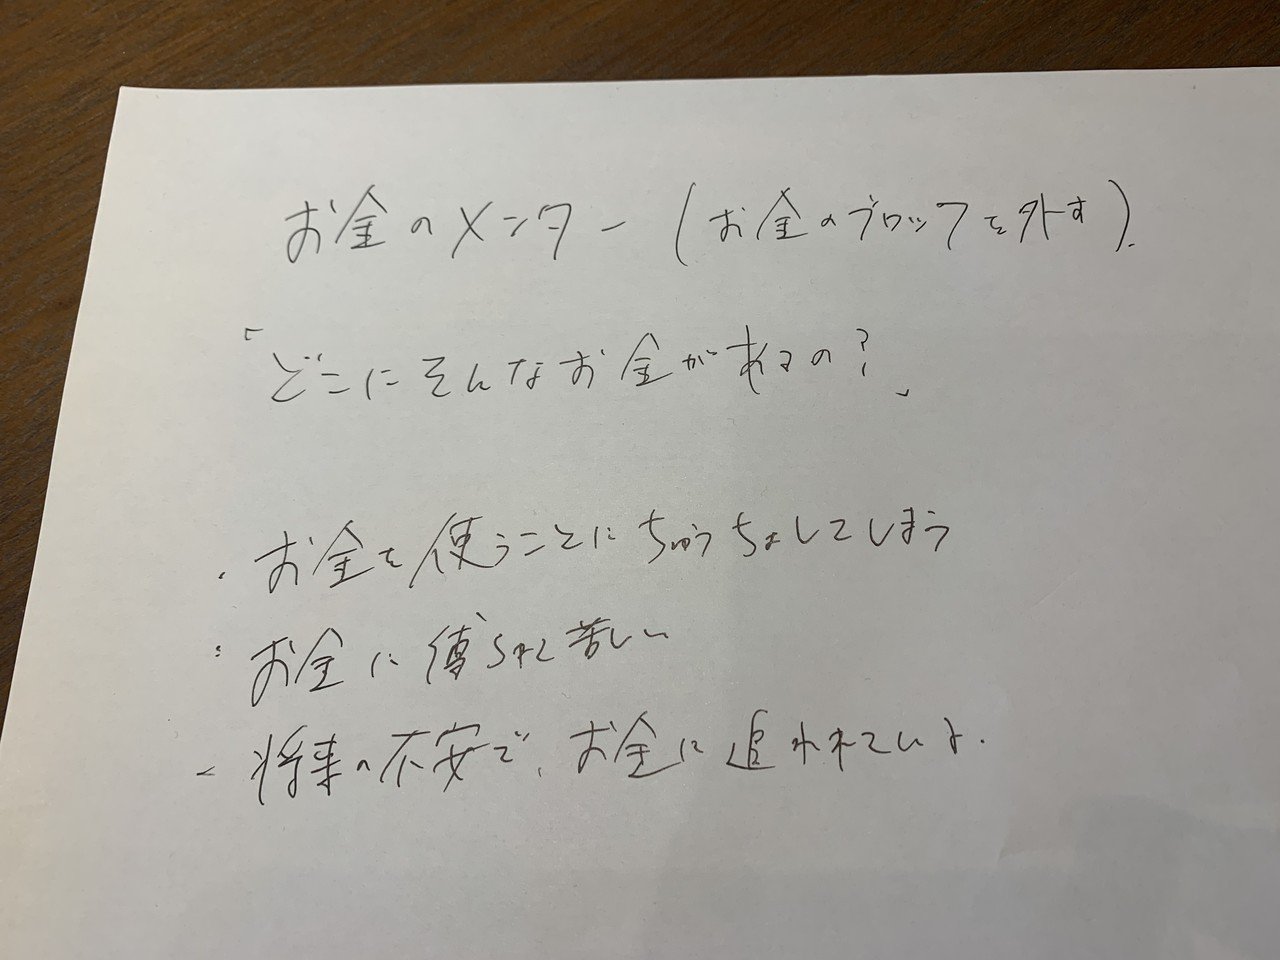 お金のメンター(お金のブロックを外す).
「どこにそんなお金があるの?」
・お金を使うことにちゅうちょしてしまう
・お金に縛られて苦しい
・将来の不安で、お金に追われている.